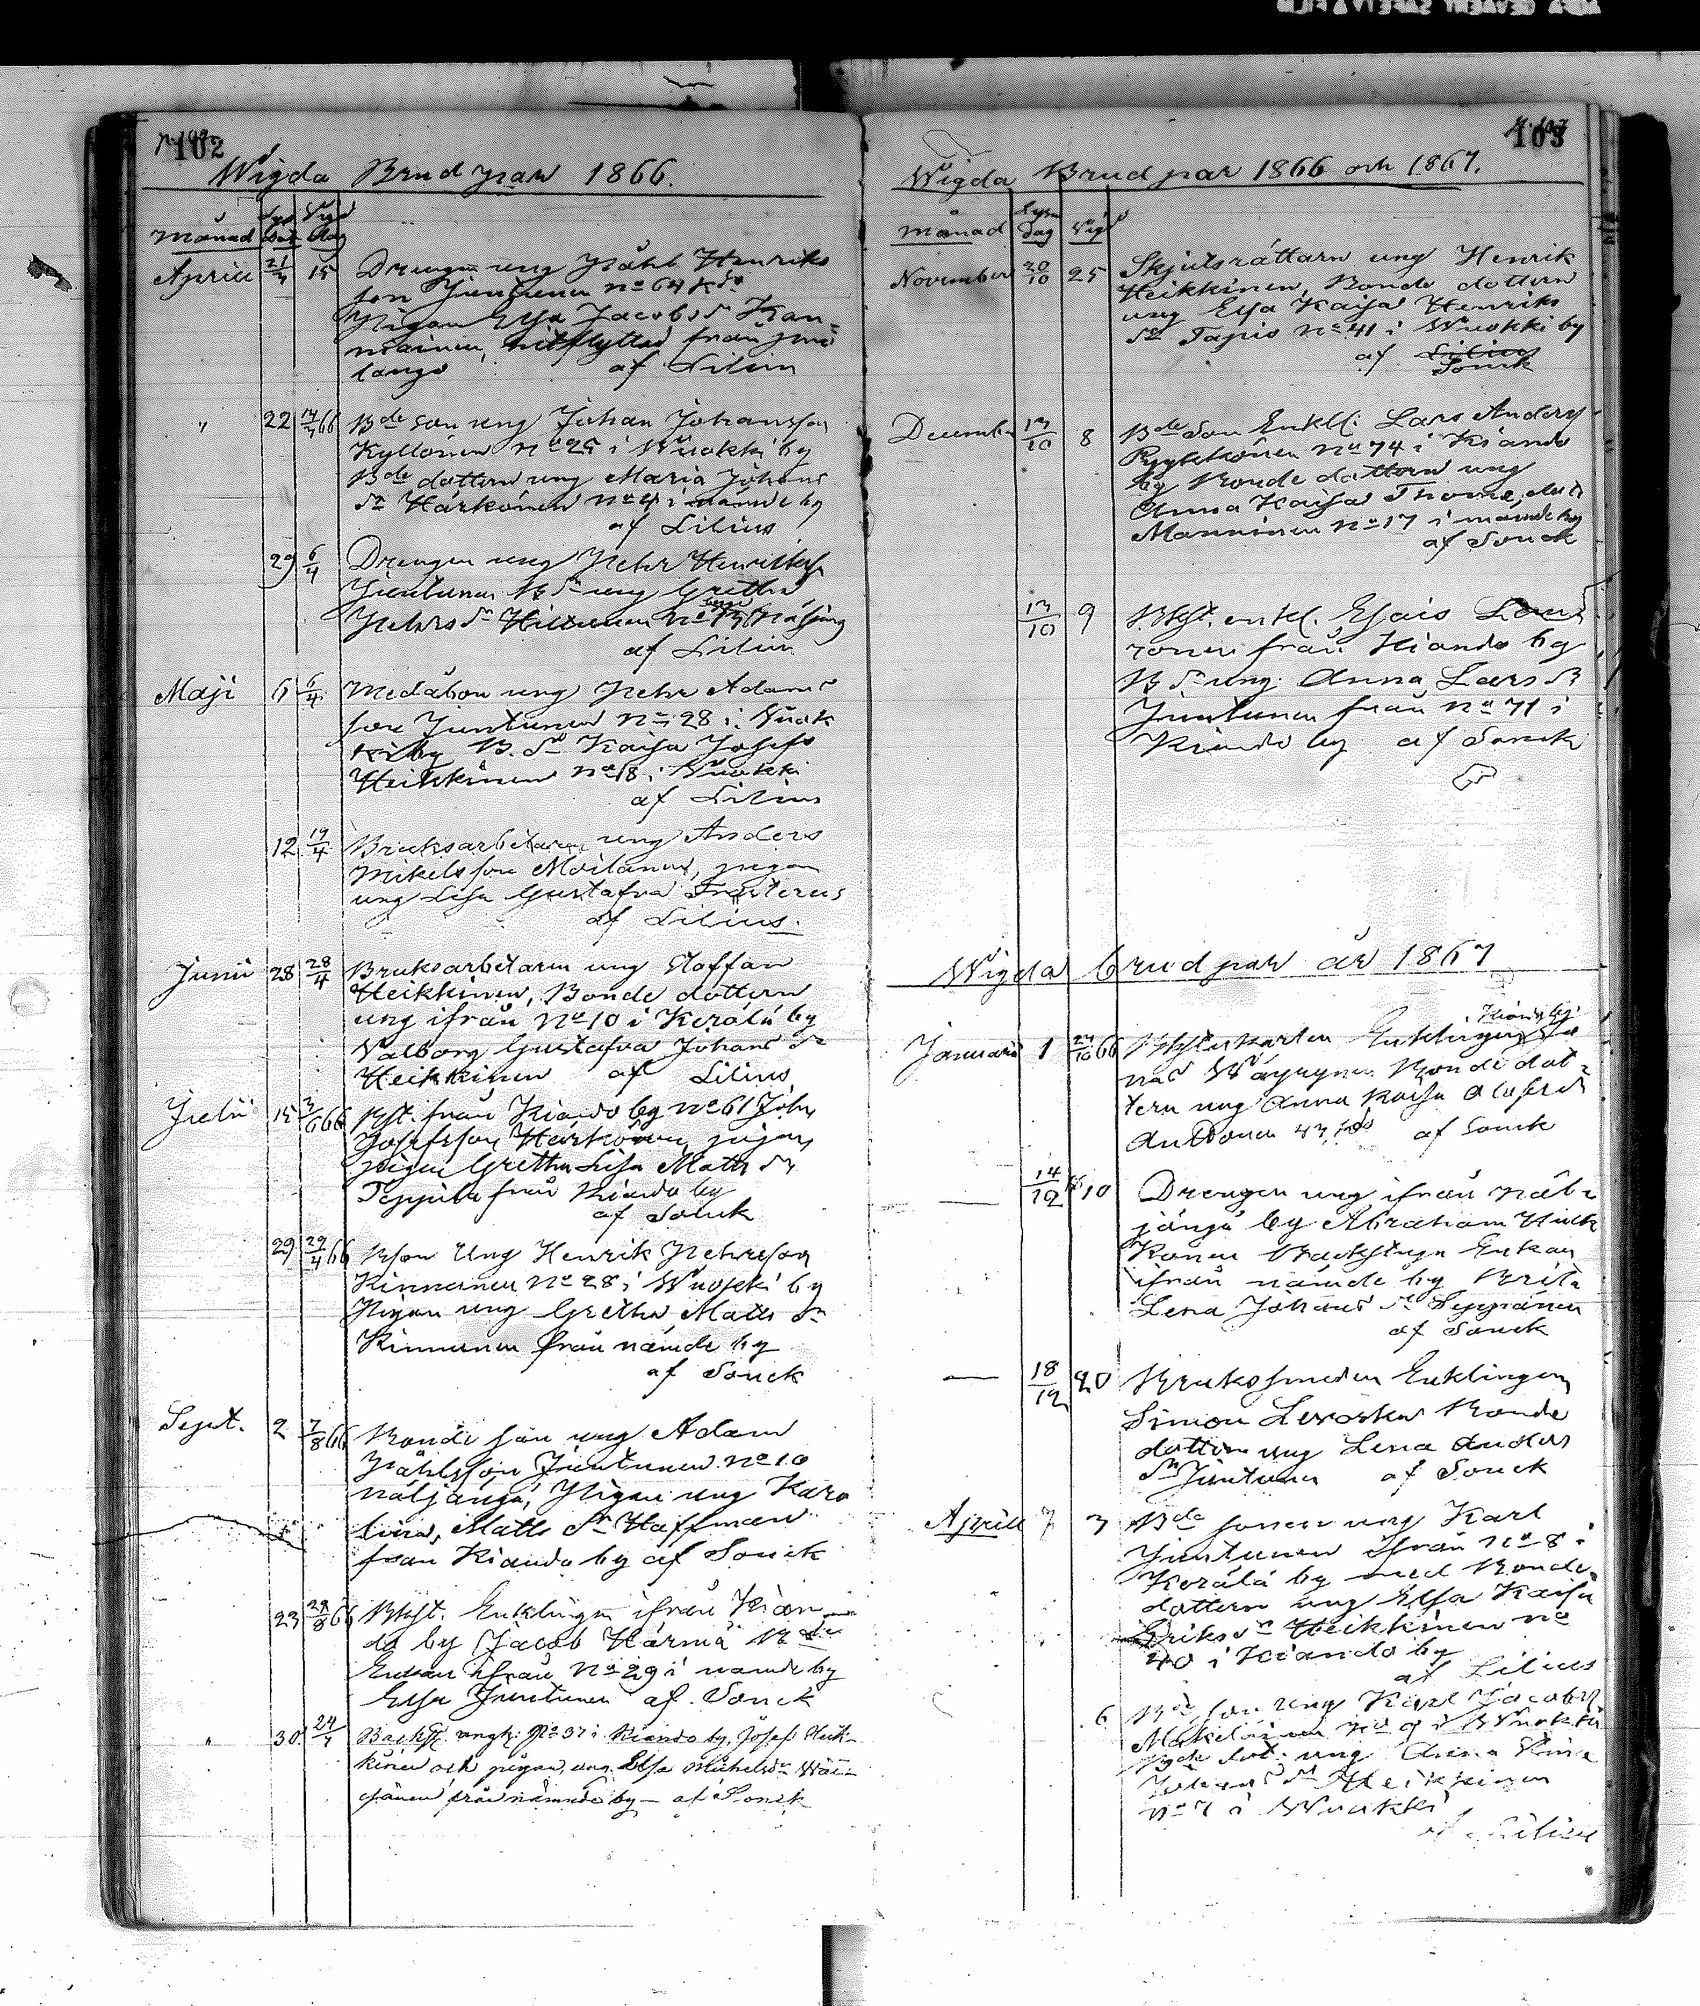 102
Wigda Brudpar 1866.
Månad Lys dag Vigd dag
April 21/3 15 Drengen ung Påhl Henriks
son Juntunen No 64 K
Pigan Elsa Jacobs dr Kan-
nainen, hitflyttad från
af Lilius
" 22 66 Bde son ung Johan Johansson
Kyllönen No 25 i Wuokki by
Bde dottern ung Maria Johans
dr Härkönen No 4 i nämde by
af Lilius
29 6/4 Drengen ung Petr Henriksson
Juntunen B dr ung Gretha
Petrs dr Hiltunen No
af Lilius
Maji 6 6/4 Medåbon ung Petr Adams
son Juntunen No 28 i Wuok
ki by B. dr Kaisa Josefs
Heikkinen No 18 i Wuokki
af Lilius
12 19/4 Bruksarbetaren ung Anders
Mikelsson Moilanen, pigan
ung Lisa Gustafva
af Lilius.
Junii 28 28/4 Bruksarbetarn ung Staffan
Heikkinen, Bonde dottern
ung ifrån No 10 i Kerälä by
Valborg Gustafva Johans dr
Heikkinen af Lilius
Julii 15 3/6 66 Bst. från Kiando by No 61 Joh.
Josefsson Härkönen, pigan
pigan Gretha Lisa Mats dr
från Kiando by
af Sonck
29 29/4 66 Bson Ung Henrik Petersson
Kinnunen No 28 i Wuokki by
Pigan ung Gretha Matts dr
Kinnunen från nämde by
af Sonck
Sept. 2 7/8 66 Bonde son ung Adam
Påhlsson Juntunen No 10
Näljängä, Pigan ung Karo
lina, Matts dr Haffman
från Kiando by af Sonck
23 29/8 66 Bkst. Enklingen ifrån Kian
do by Jacob Härmä Bde
Enkan ifrån No 29 i namde by
Elsa Juntunen af Sonck
" 30 24/ Backst. ungk. No 37 i Kiando by, Josef Heik-
kinen och pigan, ung Elsa Michelsdr Wäi-
sänen från nämnde by – af Sonck
103
Wigda Brudpar 1866 och 1867.
Månad Lysn dag Vigd
November 20/10 25 Skjutsrättarn ung Henrik
Heikkinen, Bonde dottern
ung Elsa Kaisa Henriks
dr Tapio No 41 i Wuokki by
af Lilius
Sonck
December 13/10 8 Bde Son Enkl: Lars Anders
Pyykkönen No 74 i Kiando
by Bonde dottern ung
Anna Kaisa Thome dotr
Manninen No 17 i nämde by
af Sonck
13/10 9 Bkst. enkl. Esais
från Kiando by
B dr ung. Anna Lars dr
Juntunen från No 71 i
Kiando by af Sonck
Wigda brudpar år 1867
Kiando by
Januari 1 66 Enklingen Jo
nas Väyrynen Bonde dot-
tern ung Anna Kaisa
Anttonen af Sonck
— 14/12 10 Drengen ung ifrån Näl-
jängä by Abraham Huck
konen Backstugu Enkan
ifrån nämde by Brita
Lena Johans dr Seppänen
af Sonck
— 18/12 20 Brukssmeden Enklingen
Simon Leskoskin Bonde
dottern ung Lena Anders
dr Juntunen af Sonck
April 7 3 Bde sonen ung Karl
Juntunen ifrån No 8 i
Kerälä by med Bonde
dottern ung Elsa Kaisa
Eriks dr Heikkinen No
40 i Kiando by
af Lilius
6 Bde son ung Karl Jacobss
Mikkelainen No 9 i Wuokki
Bde dot. ung Anna Stina
Johans dr Heikkinen
No 7 i Wuokki
af Lilius